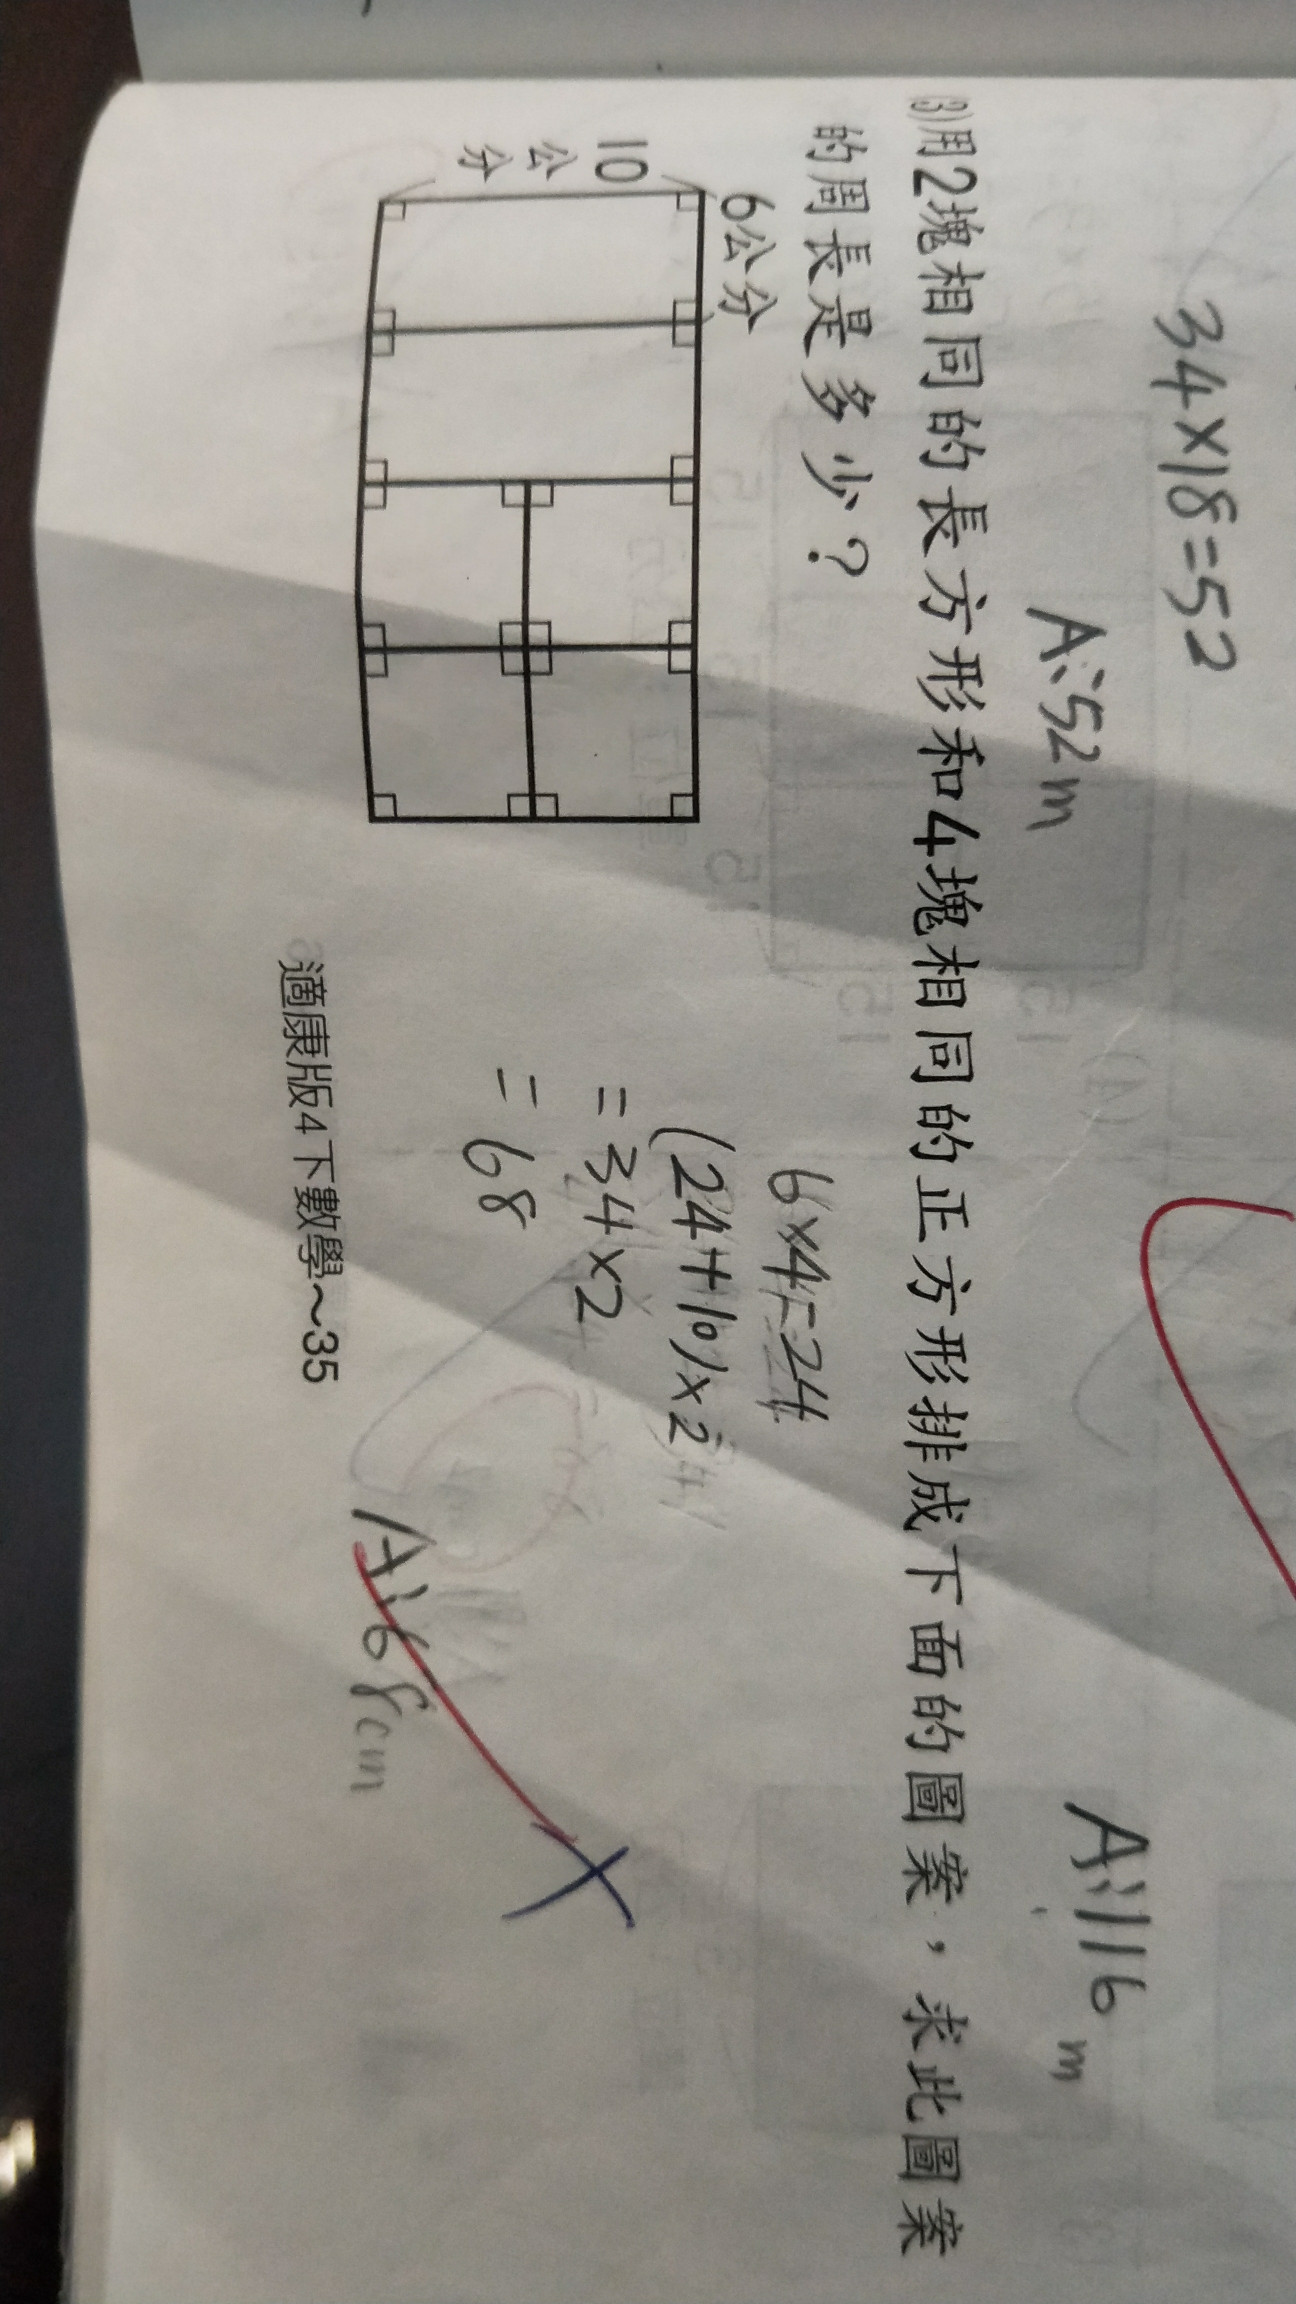 34×18=52
A:52m
A:116m
(3)用2塊相同的長方形和4塊相同的正方形排成下面的圖案,求此圖案
的周長是多少?
6公分
10公分
6×4=24
(24+10)×2
=34×2
=68
A:68cm
適康版4下數學~35